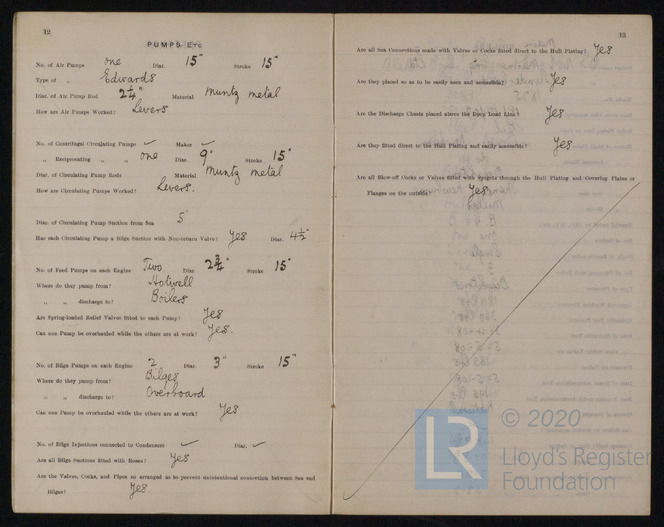 12
PUMPS, Etc
No. of Air Pumps one Diar. 15" Stroke 15"
Type of „ Edwards
Diar. of Air Pump Rod 2 1/4" Material Muntz metal
How are Air Pumps Worked? Levers
No. of Centrifugal Circulating Pumps ✓ Maker ✓
„ Reciprocating „ „ one Diar. 9" Stroke 15"
Diar. of Circulating Pump Rods Material Muntz metal
How are Circulating Pumps Worked? Levers.
Diar. of Circulating Pump Suction from Sea 5"
Has each Circulating Pump a Bilge Suction with Non-return Valve? Yes Diar. 4 1/2"
No. of Feed Pumps on each Engine Two Diar. 2 3/4" Stroke 15"
Where do they pump from? Hotwell
„ „ discharge to? Boilers
Are Spring-loaded Relief Valves fitted to each Pump? Yes
Can one Pump be overhauled while the others are at work? Yes.
No. of Bilge Pumps on each Engine 2 Diar. 3" Stroke 15"
Where do they pump from? Bilges
„ „ discharge to? Overboard
Can one Pump be overhauled while the others are at work? Yes
No. of Bilge Injections connected to Condensers ✓ Diar. ✓
Are all Bilge Suctions fitted with Roses? Yes
Are the Valves, Cocks, and Pipes so arranged as to prevent unintentional connection between Sea and
Bilges? Yes.
13
Are all Sea Connections made with Valves or Cocks fitted direct to the Hull Plating? Yes
Are they placed so as to be easily seen and accessible? Yes
Are the Discharge Chests placed above the Deep Load Line? Yes
Are they fitted direct to the Hull Plating and easily accessible? Yes
Are all Blow-off Cocks or Valves fitted with Spigots through the Hull Plating and Covering Plates or
Flanges on the outside? Yes
© 2020
LR
Lloyd's Register
Foundation